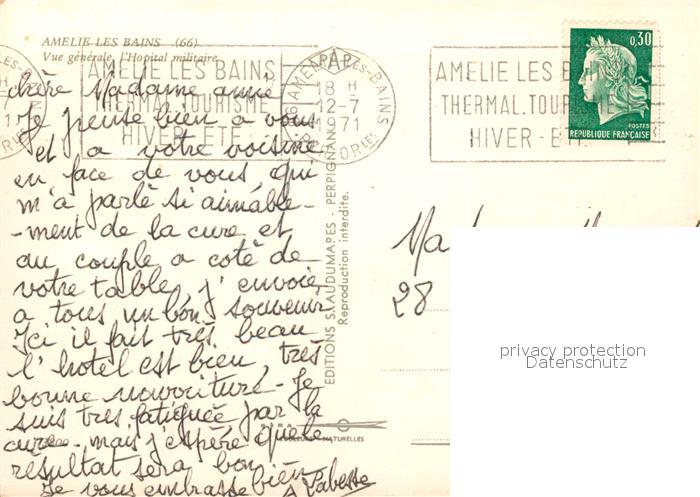 AMELIE LES BAINS (66)
Vue générale, l'Hopital militaire
AMELIE LES BAINS
THERMAL.TOURISME
HIVER - ETE
AMELIE-LES-BAINS
18 H
12-7
1971
0,30
POSTES
REPUBLIQUE FRANÇAISE
AMELIE LES
THERMAL.TOU
HIVER - ET
chère Madame amie
Je pense bien a vous
et a votre voisine
en face de vous, qui
m'a parlé si aimable-
-ment de la cure et
au couple a coté de
votre table, j'envoie
a tous un bon souvenir
Ici il fait très beau
l'hotel est bien, très
bonne nourriture - Je
suis tres fatiguée par la
cure - mais j'espère que le
resultat sera bon
Je vous embrasse bien
A Labesse
EDITIONS S.L. AUDUMARES - PERPIGNAN
Reproduction interdite.
COULEURS NATURELLES
28
privacy protection
Datenschutz